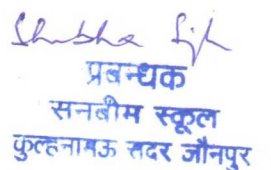 Shubha Singh
प्रबन्धक
सनबीम स्कूल
कुल्हनामऊ सदर जौनपुर